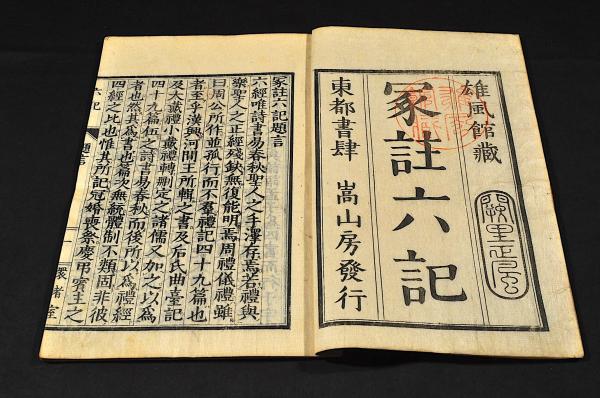 雄風館藏
冢註六記
東都書肆 嵩山房發行
冢註六記題言
六經唯詩書易春秋聖人之手澤存焉若禮與
樂聖人之正經殘缺無復能明焉周禮儀禮雖
曰周公所作並孤行而不羣禮記四十九篇也
者乎漢興河間王所輯之書及后氏曲臺記
及大戴禮小戴禮轉刪定之諸儒又加之以爲
四十九篇伍之詩書易春秋而後所以爲禮經
者也然其爲書也篇次無統體制不類固非彼
四經之比也惟其所記冠婚喪祭慶弔賓主之
六記 題言 一